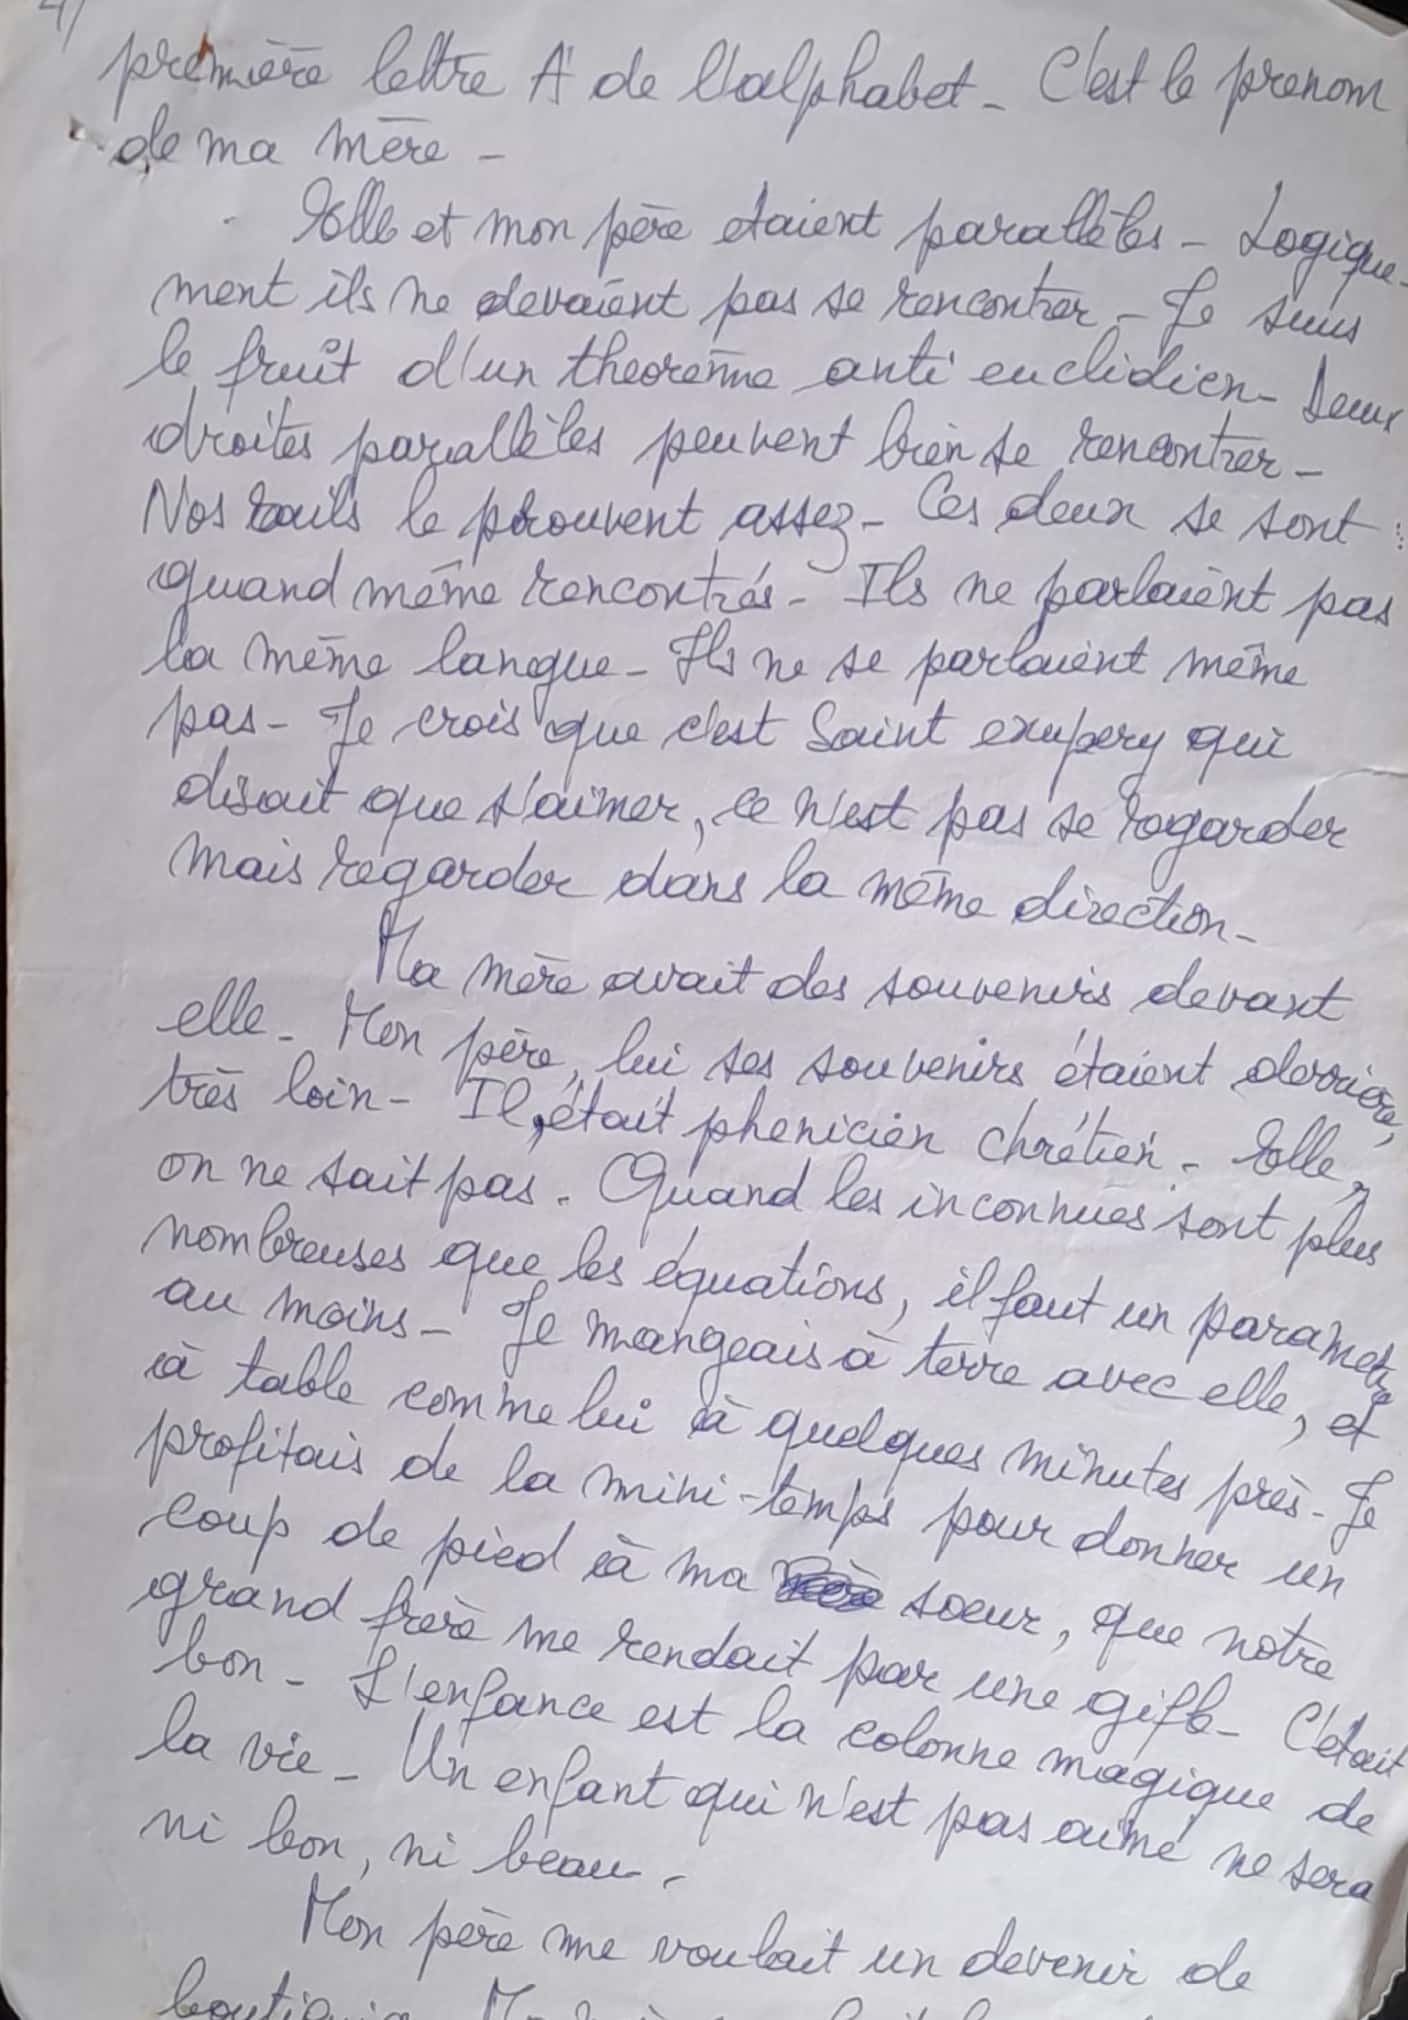 4/
première lettre A de l'alphabet - C'est le prenom
de ma mère -
Elle et mon père etaient parallèles - Logique-
ment ils ne devaient pas se rencontrer - Je suis
le fruit d'un theorème anti euclidien - Deux
droites parallèles peuvent bien se rencontrer -
Nos rails le prouvent assez - Ces deux se sont
quand même rencontrés - Ils ne parlaient pas
la même langue - Ils ne se parlaient même
pas - Je crois que c'est Saint exupery qui
disait que s'aimer, ce n'est pas se regarder
mais regarder dans la même direction -
Ma mère avait des souvenirs devant
elle - Mon père, lui ses souvenirs étaient derrière,
très loin - Il était phenicien chrétien - Elle,
on ne sait pas - Quand les inconnues sont plus
nombreuses que les équations, il faut un parametre
au moins - Je mangeais à terre avec elle, et
à table comme lui à quelques minutes près - Je
profitais de la mini-temps pour donner un
coup de pied à ma soeur, que notre
grand frère me rendait par une gifle - C'était
bon - L'enfance est la colonne magique de
la vie - Un enfant qui n'est pas aimé ne sera
ni bon, ni beau -
Mon père me voulait un devenir de